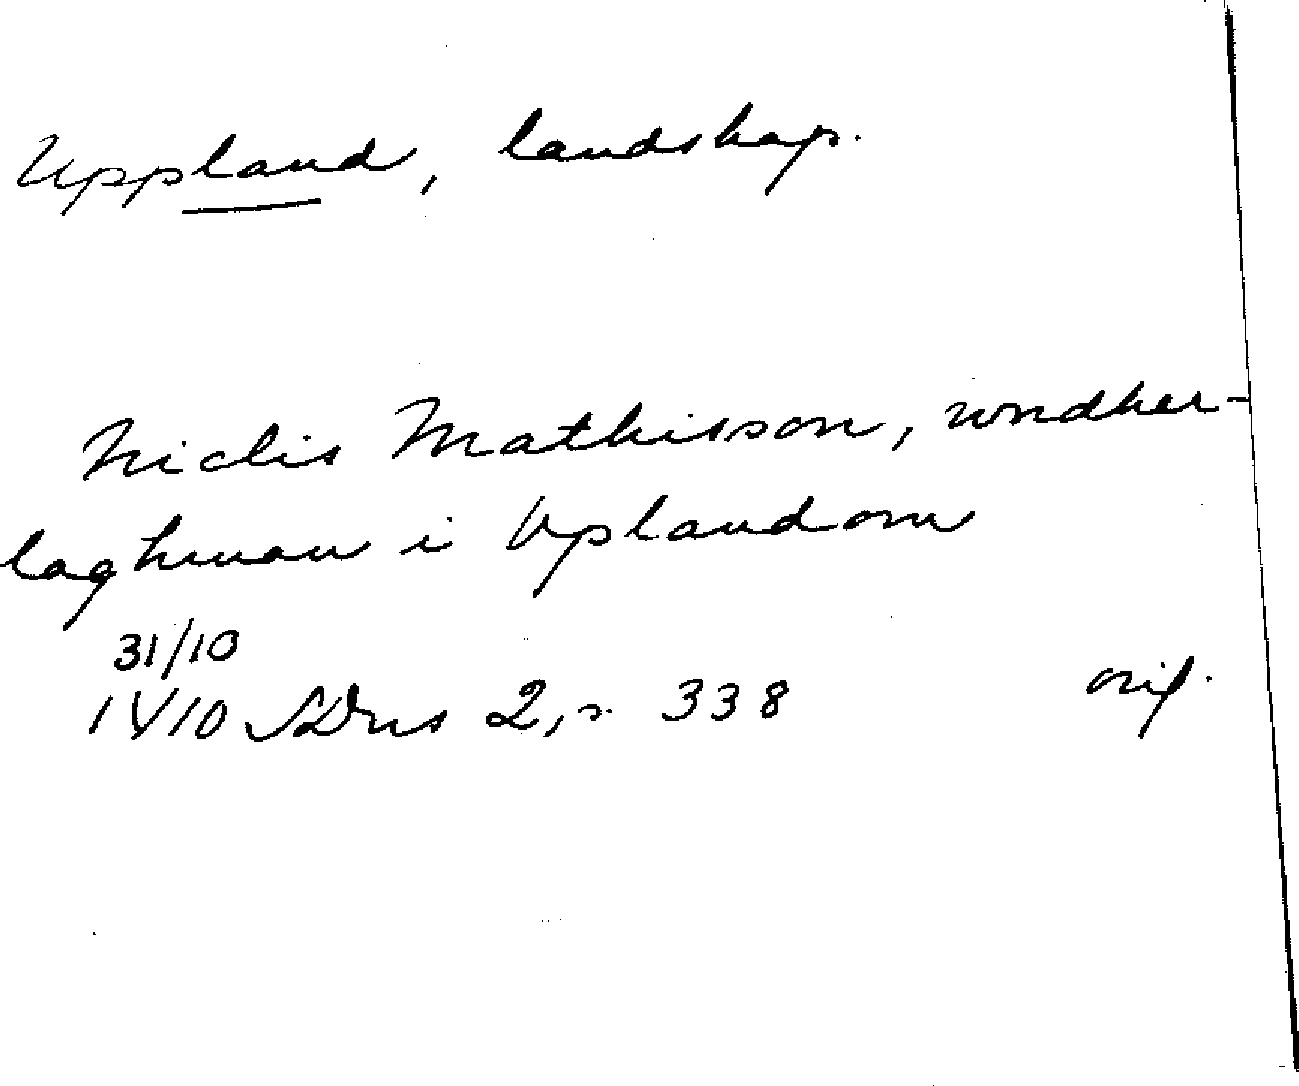 Uppland, landskap.
Niclis Mathisson, wndher-
laghman i Uplandom
31/10
1410 SDns 2, s. 338 orig.